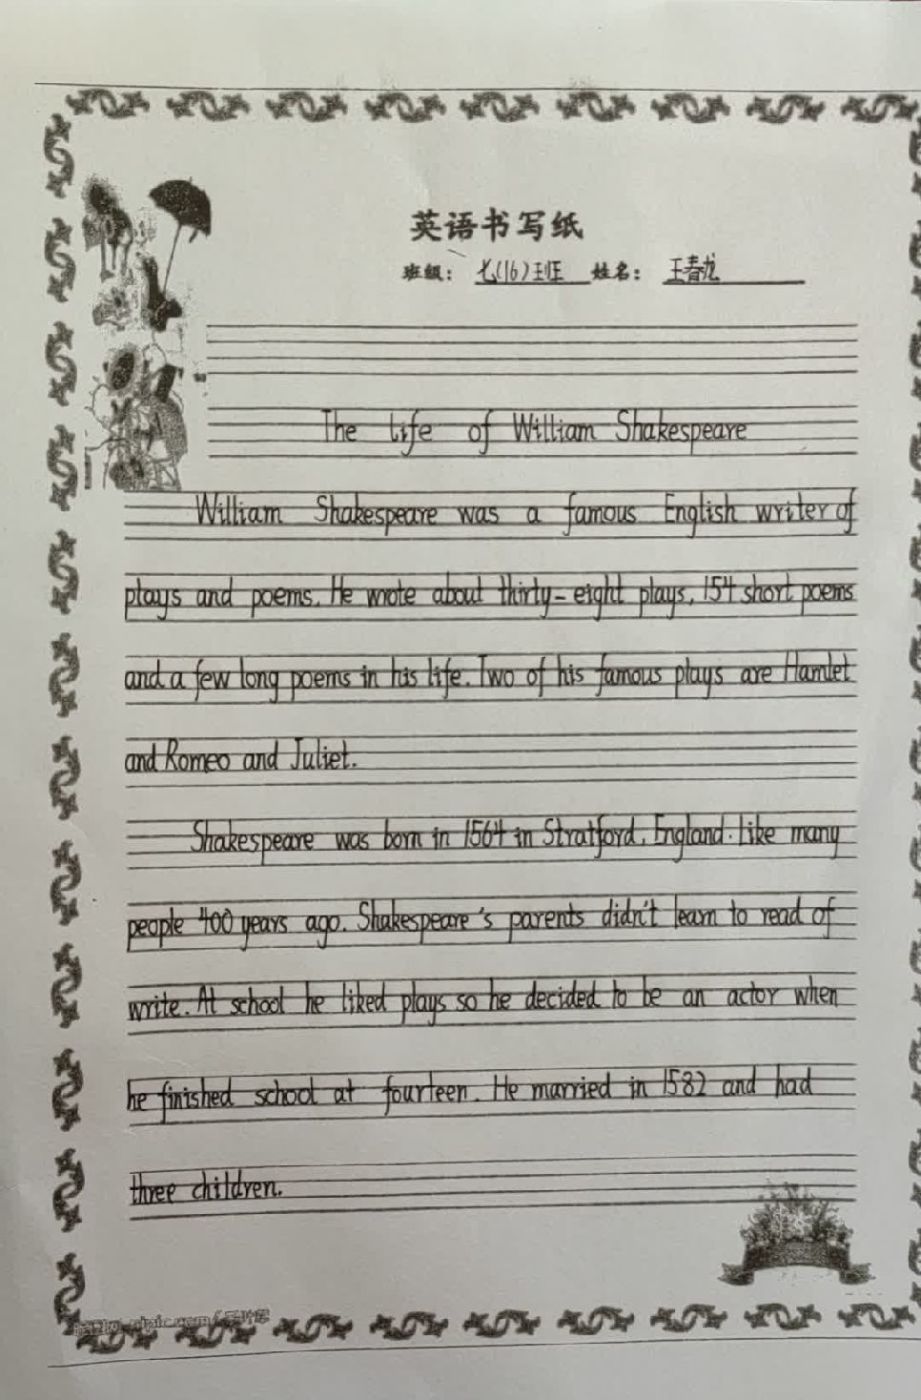 英语书写纸
班级： 七(16)班 姓名： 王春龙
The life of William Shakespeare
William Shakespeare was a famous English writer of
plays and poems. He wrote about thirty-eight plays, 154 short poems
and a few long poems in his life. Two of his famous plays are Hamlet
and Romeo and Juliet.
Shakespeare was born in 1564 in Stratford, England. Like many
people 400 years ago. Shakespeare's parents didn't learn to read of
write. At school he liked plays so he decided to be an actor when
he finished school at fourteen. He married in 1582 and had
three children.